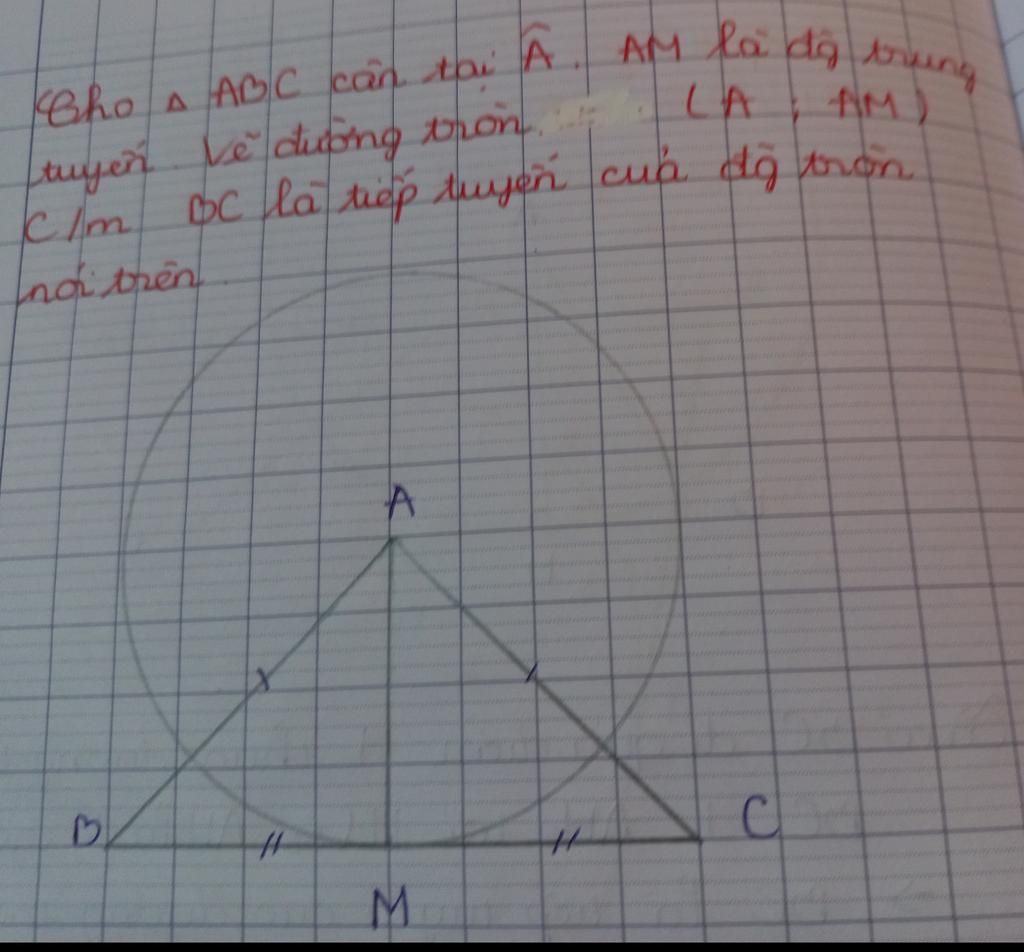 Cho △ ABC cân tại Â. AM là đg trung
tuyến Vẽ đường tròn (A, AM)
C/m BC là tiếp tuyến của đg tròn
nói trên.
A
B
C
M